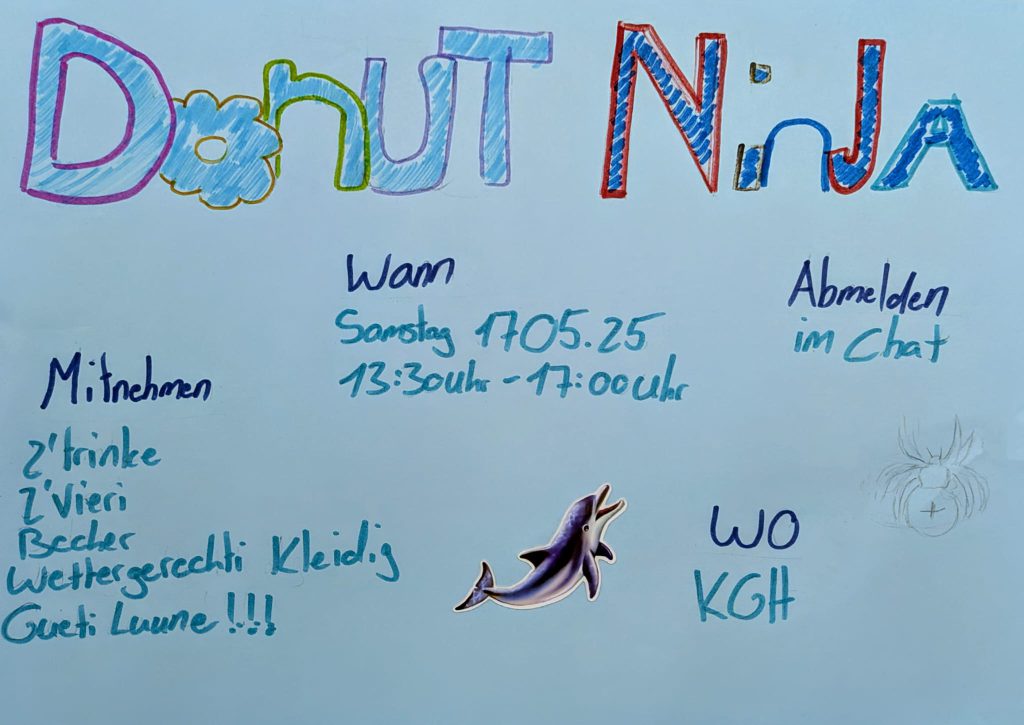 DonUT NinJA
Wann
Samstag 1705.25
13:30Uhr - 17:00Uhr
Abmelden
im Chat
Mitnehmen
Z'trinke
Z'Vieri
Becher
Wettergerechti Kleidig
Gueti Luune!!!
WO
KGH